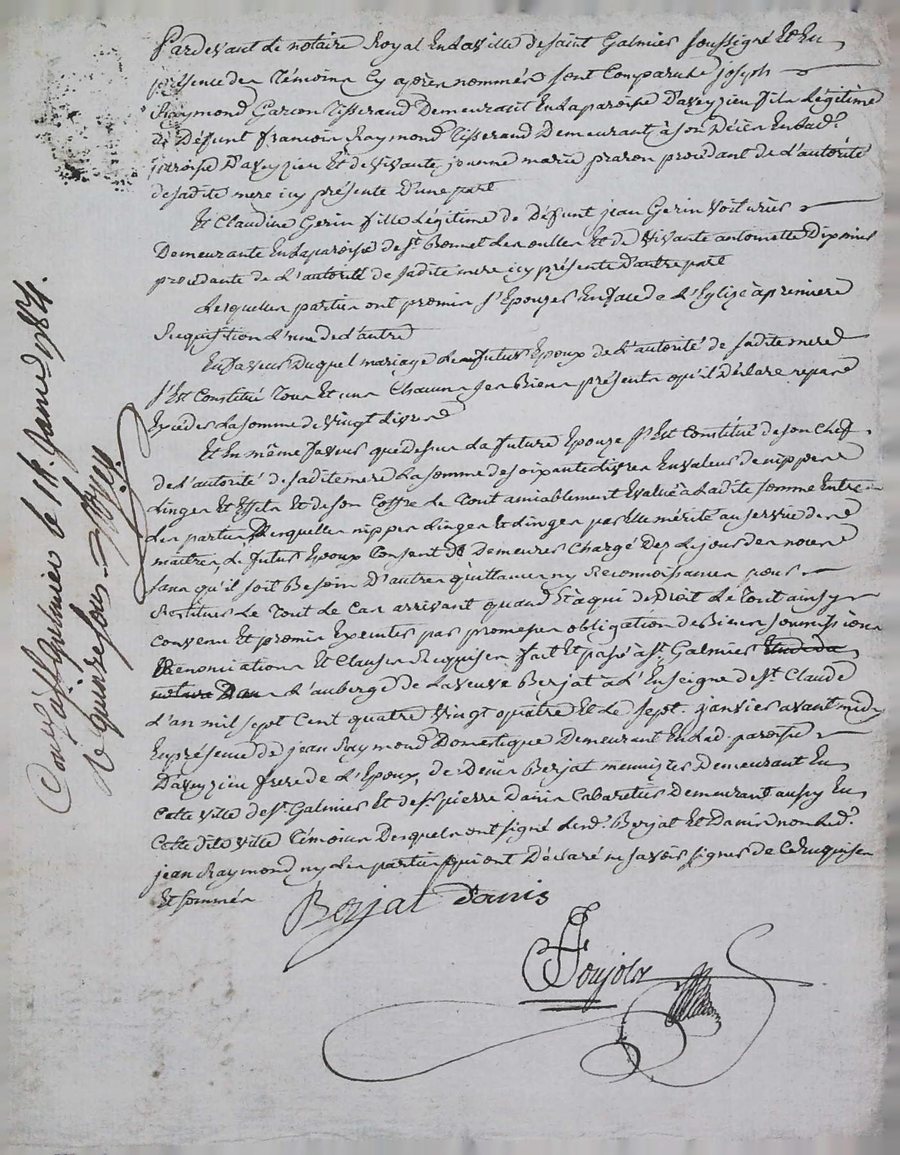 Pardevant le notaire Royal En la ville de saint Galmier soussigné Et En
présence des Témoins Cy après nommés sont Comparus joseph
Raymond Garcon Tisserand Demeurant En la paroisse D'aveyzieu fils Légitime
de Défunt francois Raymond Tisserand Demeurant à son Décès En lad.e
paroisse D'aveyzieu Et de Vivante jeanne marie prazon procédant de L'autorité
de sadite mere icy présente D'une part
Et Claudine Gerin fille Légitime de Défunt jean Gerin Voiturier
Demeurante En la paroisse de st. Bonnet Les oulles Et de Vivante antoinette
procédante de L'autorité de sadite mere icy présente D'autre part
Lesquelles parties ont promis s'Epouser En face de L'Eglise à premiere
Requisition L'une de L'autre
En faveur Duquel mariage Le futur Epoux de L'autorité de sadite mere
s'Est Constitué Tous Et uns Chacuns ses Biens présents qu'il Déclare ne pas
Exceder La somme de Vingt Livres
Et En même faveur que dessus La future Epouse s'Est Constitué de son Chef
de L'autorité de sadite mere La somme de soixante Livres En valeur de nippes
Linges Et Effets Et de son Coffre Le Tout amiablement Evalué à Ladite somme Entre
Les parties Lesquelles nippes Linges & Linges par Elle mérité au service de ses
maitres Le futur Epoux Consent de Demeurer Chargé Dez Le jour des noces
sans qu'il soit Besoin D'autres quittances ny Reconnoissances pour
Restituer Le Tout Le Cas arrivant quand Et à qui de Droit Le Tout ainsy
Convenu Et promis Executer par promesses obligation de Biens soumissions
Renonciations Et Clauses Requises fait Et passé à st. Galmier
L'auberge de La veuve Berjat a L'Enseigne de st. Claude
L'an mil sept Cent quatre Vingt quatre Et Le sept janvier avant midy
En présence de jean Raymond Domestique Demeurant En Lad. paroisse
D'aveyzieu frere de L'Epoux, de Denis Berjat menuisier Demeurant En
Cette ville de st. Galmier Et de sr. pierre Danis Cabaretier Demeurant aussy En
Cette dite ville Témoins Desquels ont signé Lesd. Berjat Et Danis non Led.
jean Raymond ny Les parties qui ont Déclaré ne savoir signer de Ce Requises
Et sommés
Berjat Danis
Poujols
Con. à st. Galmier le 14 Janv. 1784.
R. quinze sous